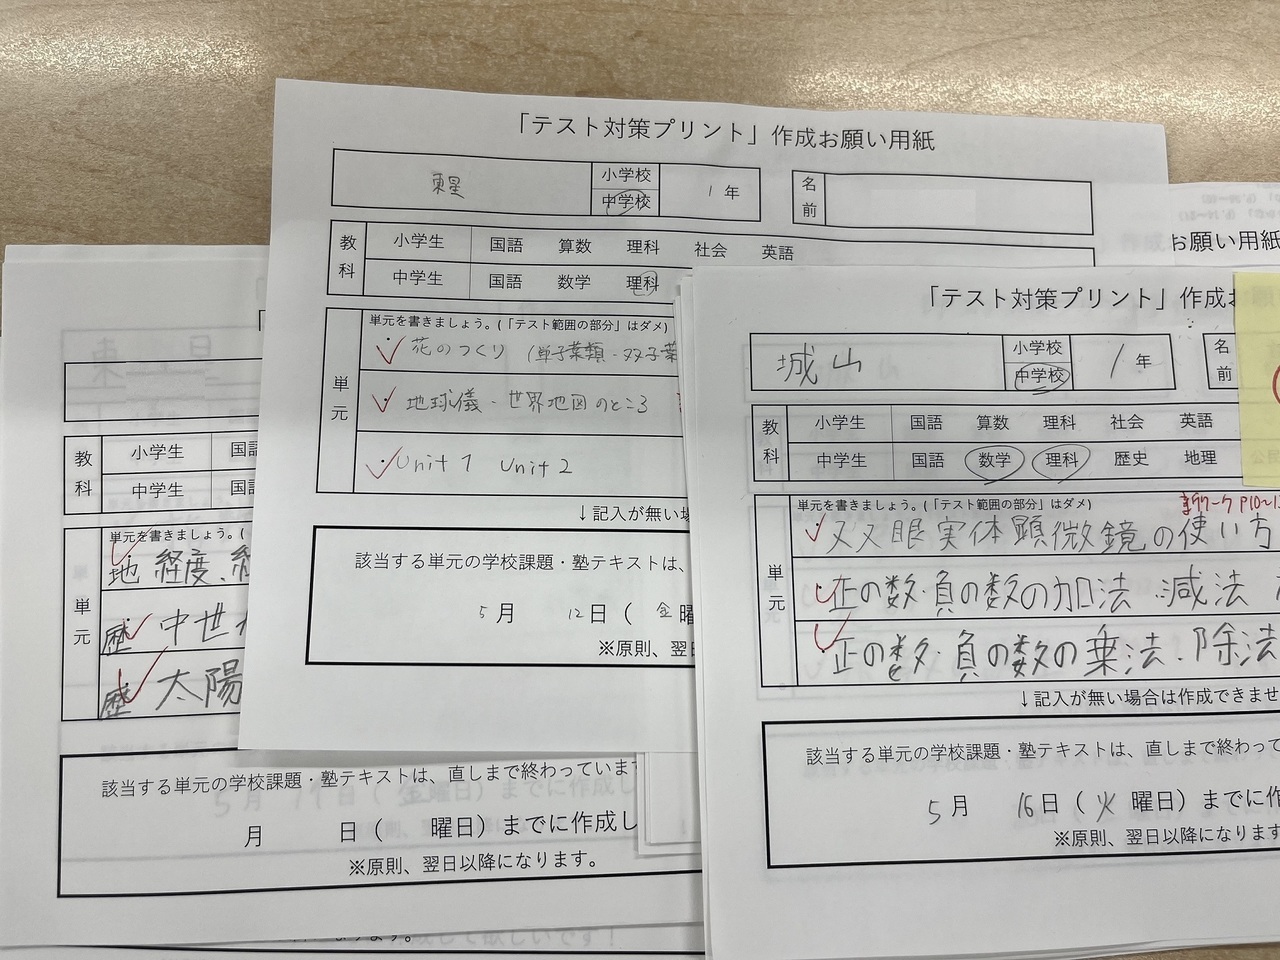 「テスト対策プリント」作成お願い用紙
東星
小学校
中学校
1年
名前
教科
小学生 国語 算数 理科 社会 英語
中学生 国語 数学 理科
単元
単元を書きましょう。(「テスト範囲の部分」はダメ)
花のつくり (単子葉類・双子葉
地球儀・世界地図のところ
Unit 1 Unit 2
↓記入が無い場
該当する単元の学校課題・塾テキストは、
5月 12日(金曜
※原則、翌日
お願い用紙
「テスト対策プリント」作成お
城山
小学校
中学校
1年
名前
教科
小学生 国語 算数 理科 社会 英語
中学生 国語 数学 理科 歴史 地理
単元
単元を書きましょう。(「テスト範囲の部分」はダメ)
双双眼実体顕微鏡の使い方
正の数・負の数の加法 減法
正の数・負の数の乗法・除法
↓記入が無い場合は作成できませ
該当する単元の学校課題・塾テキストは、直しまで終わって
5月 16日(火曜日)までに作成
※原則、翌日以降になります
教科
小学生 国語
中学生 国
単元
単元を書きましょう。(「テスト範囲の
地 経度、緯
歴 中世
歴 太陽
該当する単元の学校課題・塾テキストは、直しまで終わっています
月 日( 曜日)までに作成し
※原則、翌日以降になります。